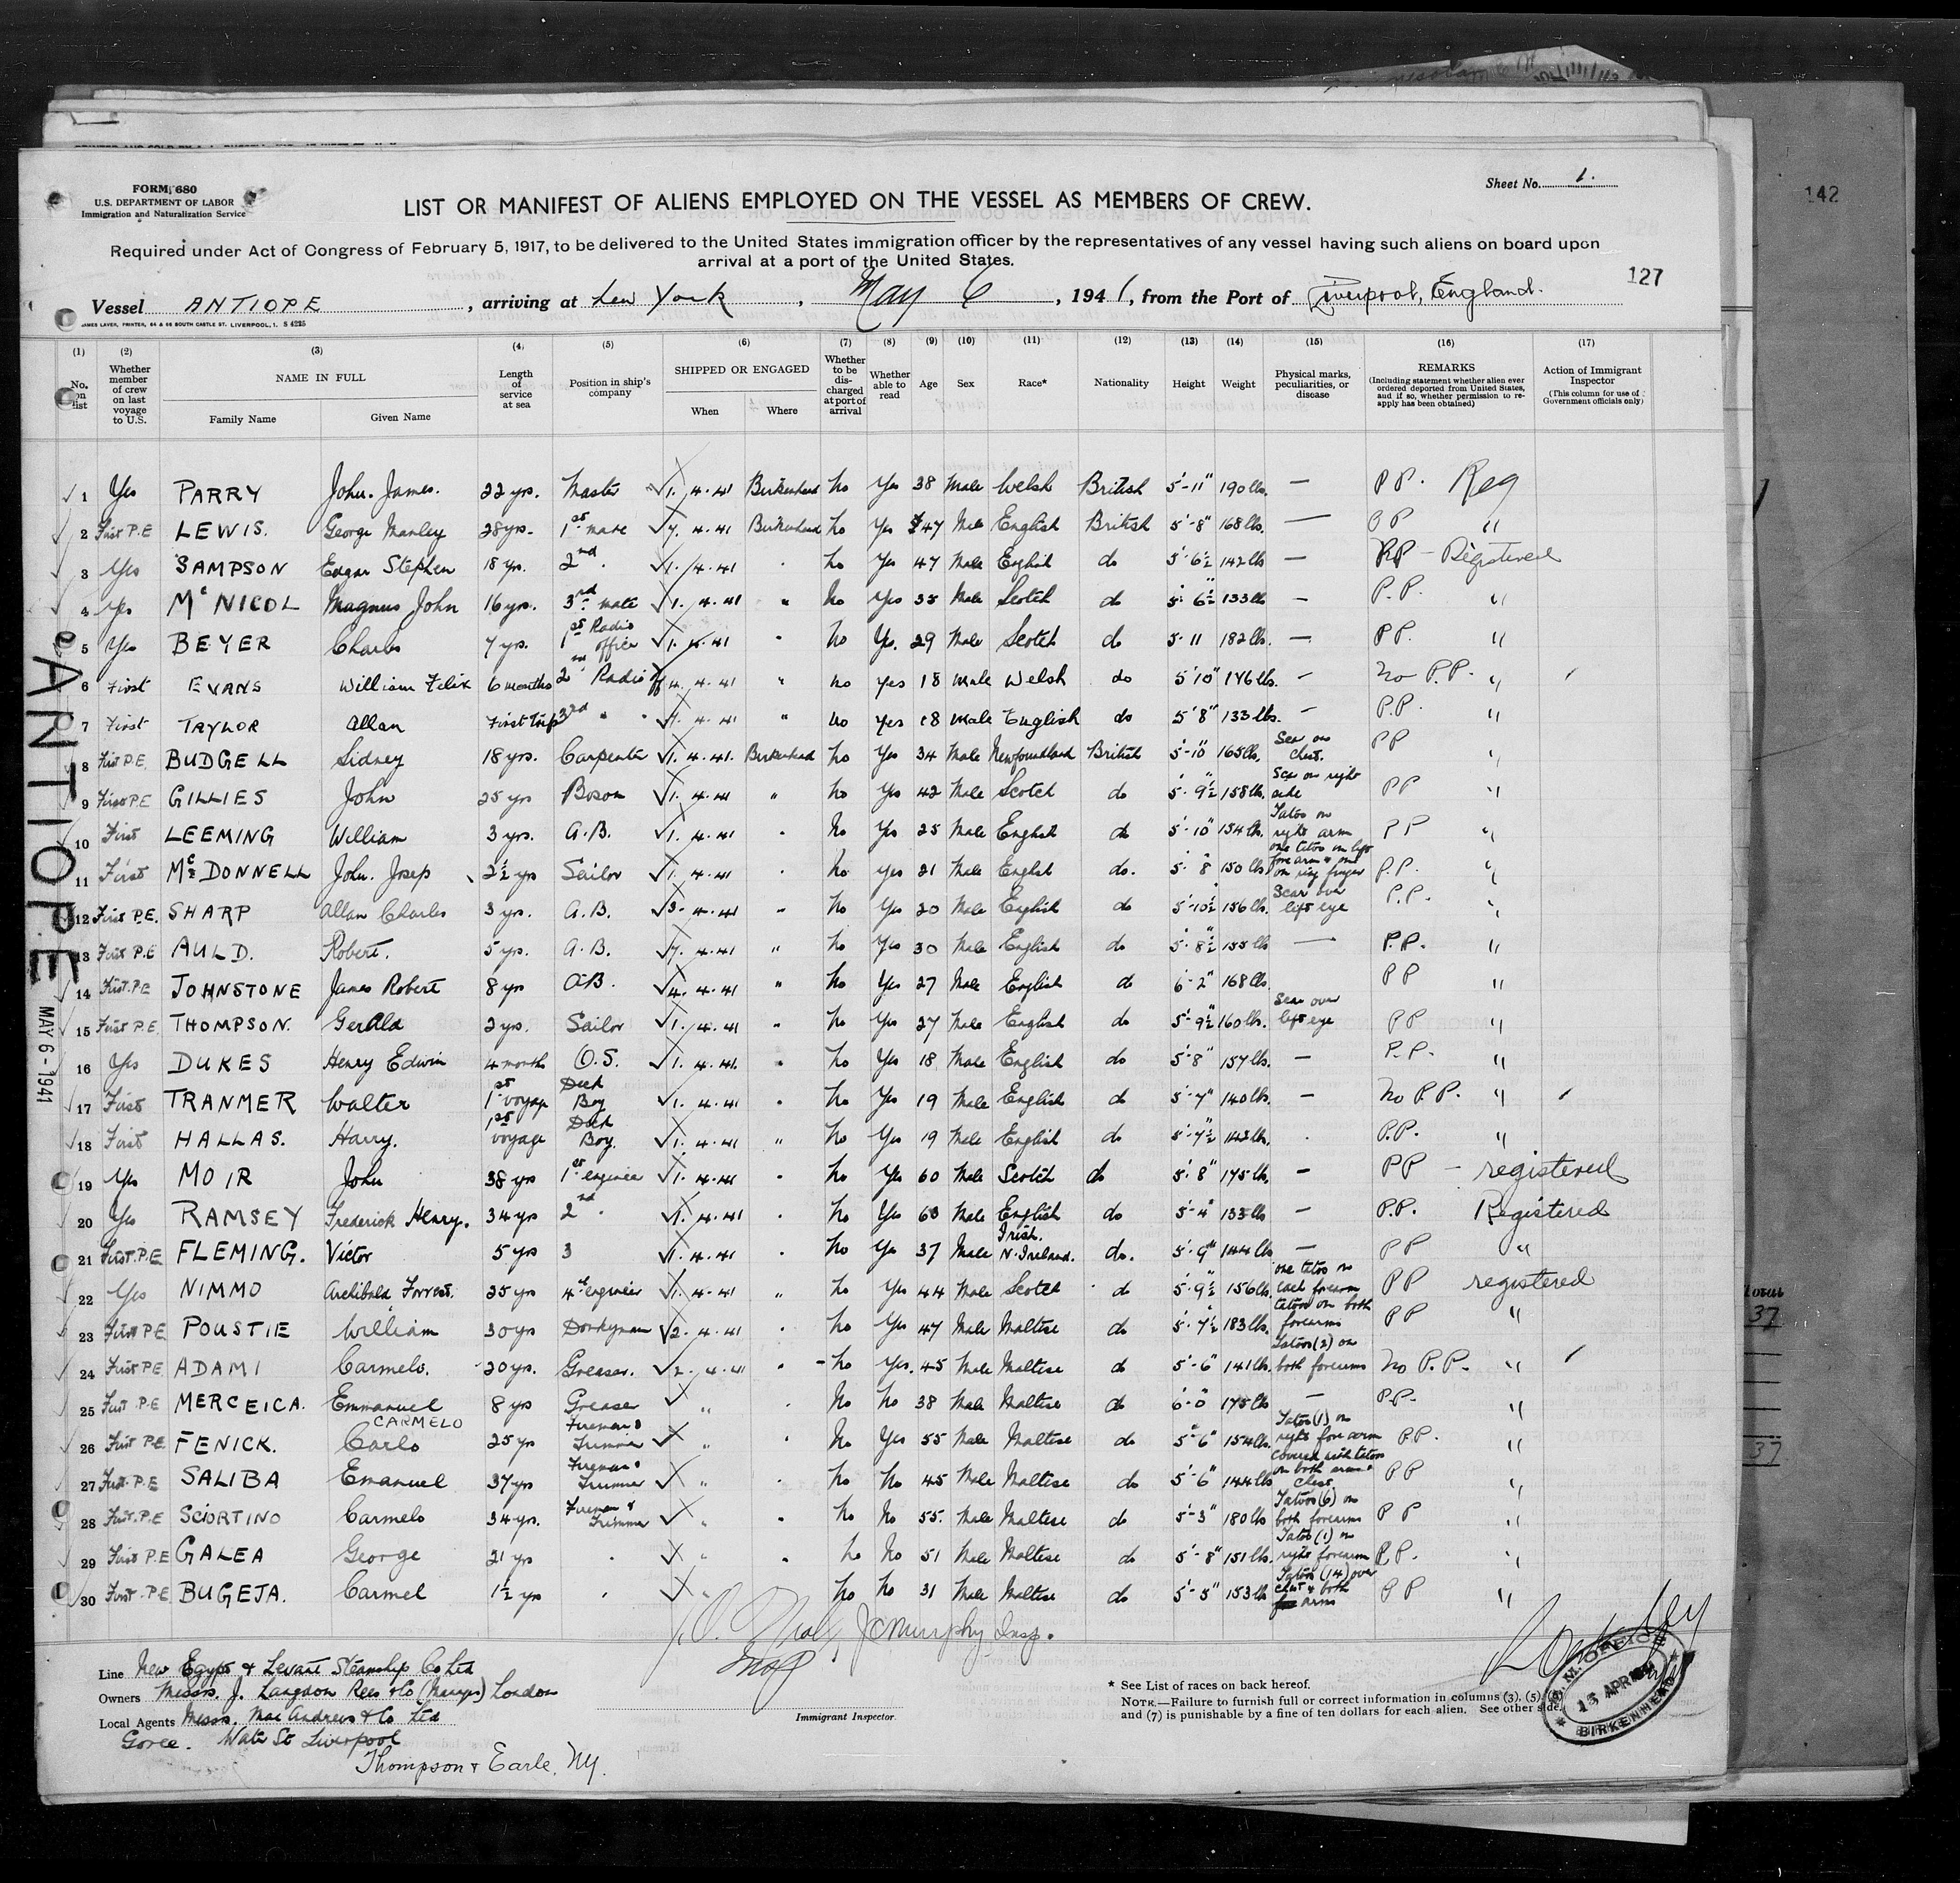 142
FORM 680
U.S. DEPARTMENT OF LABOR
Immigration and Naturalization Service
Sheet No. 1.
LIST OR MANIFEST OF ALIENS EMPLOYED ON THE VESSEL AS MEMBERS OF CREW.
Required under Act of Congress of February 5, 1917, to be delivered to the United States immigration officer by the representatives of any vessel having such aliens on board upon
arrival at a port of the United States.
127
Vessel ANTIOPE, arriving at New York, May 6, 1941, from the Port of Liverpool, England.
JAMES LAVER, PRINTER, 64 & 66 SOUTH CASTLE ST. LIVERPOOL, 1. S 4225
(1) (2) (3) (4) (5) (6) (7) (8) (9) (10) (11) (12) (13) (14) (15) (16) (17)
No. on list
Whether member of crew on last voyage to U.S.
NAME IN FULL
Family Name Given Name
Length of service at sea
Position in ship's company
SHIPPED OR ENGAGED
When Where
Whether to be discharged at port of arrival
Whether able to read
Age Sex Race* Nationality Height Weight
Physical marks, peculiarities, or disease
REMARKS
(Including statement whether alien ever ordered deported from United States, and if so, whether permission to re-apply has been obtained)
Action of Immigrant Inspector
(This column for use of Government officials only)
1 Yes PARRY John. James. 22 yrs. Master 1. 4. 41 Birkenhead No Yes 38 Male Welsh British 5'-11" 190 lbs. — PP. Reg
2 First P.E LEWIS. George Manley 28 yrs. 1st mate 7. 4. 41 Birkenhead No Yes 47 Male English British 5'-8" 168 lbs. — PP "
3 Yes SAMPSON Edgar Stephen 18 yrs. 2nd " 1. 4. 41 " No Yes 47 Male English do 5'-6½ 142 lbs — PP - Registered
4 Yes McNICOL Magnus John 16 yrs. 3rd mate 1. 4. 41 " No Yes 35 Male Scotch do 5'-6½ 133 lbs — P.P. "
5 Yes BEYER Charles 7 yrs. 1st Radio officer 1. 4. 41 " No Yes. 29 Male Scotch do 5-11 182 lbs. — PP. "
6 First EVANS William Felix 6 months 2nd Radio off 4. 4. 41 " No Yes 18 Male Welsh do 5'10" 146 lbs. — No P.P. "
7 First TAYLOR Allan First trip 3rd " " 7. 4. 41 " No Yes 18 Male English do 5'8" 133 lbs. — P.P. "
8 First P.E. BUDGELL Sidney 18 yrs. Carpenter 1. 4. 41. Birkenhead No Yes 34 Male Newfoundland British 5'-10 165 lbs. Scar on chest. PP "
9 First P.E GILLIES John 25 yrs Boson 1. 4. 41 " No Yes 42 Male Scotch do 5'-9½ 158 lbs. Scar on right side PP "
10 First LEEMING William 3 yrs. A.B. 1. 4. 41 " No Yes 25 Male English do 5'-10" 154 lbs. Tatoo on right arm PP "
11 First McDONNELL John. Josep 2½ yrs Sailor 1. 4. 41 " No Yes 21 Male English do. 5'-8" 150 lbs one tatoo on left forearm & one on ring finger P.P. "
12 First P.E. SHARP Allan Charles 3 yrs. A.B. 3. 4. 41 " No Yes 20 Male English do 5'-10½ 156 lbs. Scar over left eye P.P. "
13 First P.E AULD. Robert. 5 yrs. A.B. 7. 4. 41 " No Yes 30 Male English do 5'-8½ 155 lbs — P.P. "
14 First P.E JOHNSTONE James Robert 8 yrs A.B. 4. 4. 41 " No Yes 27 Male English do 6'-2" 168 lbs. PP "
15 First P.E. THOMPSON. Gerald 2 yrs. Sailor 1. 4. 41 " No Yes 27 Male English do 5'-9½ 160 lbs. Scar over left eye PP "
16 Yes DUKES Henry Edwin 4 months O.S. 1. 4. 41. " No Yes 18 Male English do 5'-8" 157 lbs. — P.P. "
17 First TRANMER Walter 1st voyage Deck Boy 1. 4. 41 " No Yes 19 Male English do 5'-7" 140 lbs. — No P.P. "
18 First HALLAS. Harry. 1st voyage Deck Boy. 1. 4. 41 " No Yes 19 Male English do 5'-7½ 142 lbs. P.P. "
19 Yes MOIR John 38 yrs 1st engineer 1. 4. 41 " No Yes 60 Male Scotch do 5'-8" 175 lbs. — PP - registered
20 Yes RAMSEY Frederick Henry. 34 yrs 2nd " 1. 4. 41 " No Yes 60 Male English do 5'-4" 133 lbs — P.P. Registered
21 First P.E FLEMING. Victor 5 yrs 3 1. 4. 41 " No Yes 37 Male Irish. N. Ireland. do. 5'-9" 144 lbs — PP "
22 Yes NIMMO Archibald Forrest. 25 yrs 4th engineer 1. 4. 41 " No Yes 44 Male Scotch do 5'-9½ 156 lbs one tatoo on each forearm PP registered
23 First P.E POUSTIE William 30 yrs Donkeyman 2. 4. 41 " No Yes 47 Male Maltese do 5'-7½ 183 lbs. tatoos on both forearms PP "
24 First P.E ADAMI Carmelo. 20 yrs. Greaser. 2. 4. 41 " No Yes. 45 Male Maltese do 5'-6" 141 lbs. Tatoos (2) on both forearms No P.P. "
25 First P.E MERCEICA. Emmanuel 8 yrs Greaser " " No No 38 Male Maltese do 6'-0" 175 lbs — P.P. "
26 First P.E. FENICK. CARMELO Carlo 25 yrs Fireman & Trimmer " " No Yes 55 Male Maltese do 5'-6" 154 lbs. Tatoo (1) on right forearm P.P. "
27 First P.E SALIBA Emanuel 37 yrs Fireman & Trimmer " " No No 45 Male Maltese do 5'-6" 144 lbs covered with tatoos on both arms & chest. PP "
28 First P.E SCIORTINO Carmelo 34 yrs. Fireman & Trimmer " " No No 55. Male Maltese do 5'-3" 180 lbs Tatoos (6) on both forearms PP "
29 First P.E GALEA George 21 yrs " " " No No 51 Male Maltese do 5'-8" 151 lbs. Tatoo (1) on right forearm P.P. "
30 First P.E BUGEJA. Carmel 1½ yrs " " No No 31 Male Maltese do 5'-5" 153 lbs Tatoos (14) over chest & both arms PP "
ANTIOPE
MAY 6 - 1941
J.C. Murphy Insp.
Insp
Line New Egypt & Levant Steamship Co Ltd
Owners Messrs. J. Langdon Rees & Co (Mangrs) London
Local Agents Messrs. Mac Andrews & Co Ltd
Goree. Water St Liverpool
Thompson & Earle, NY.
Immigrant Inspector.
* See List of races on back hereof.
NOTE.—Failure to furnish full or correct information in columns (3), (5), (6)
and (7) is punishable by a fine of ten dollars for each alien. See other side.
M.M. OFFICE
15 APR 1941
BIRKENHEAD
37
37